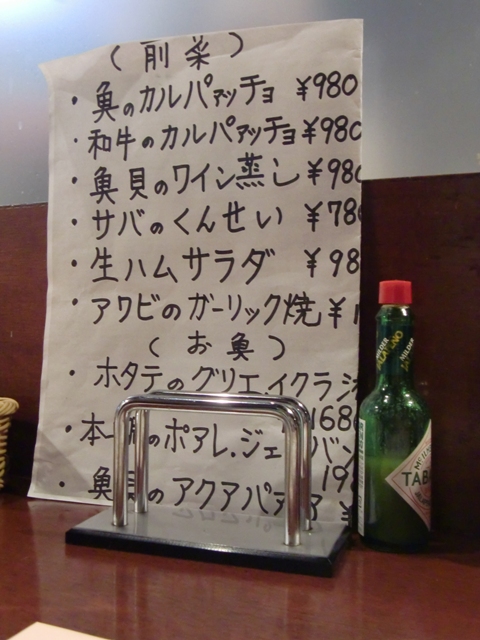 (前菜)
・魚のカルパァッチョ ¥980
・和牛のカルパァッチョ ¥980
・魚貝のワイン蒸し ¥980
・サバのくんせい ¥78
・生ハムサラダ ¥98
・アワビのガーリック焼 ¥1
(お魚)
・ホタテのグリエ.イクラ
168
・本 のポアレ.ジェ バン
198
・魚 のアクアパァ ア ¥
MILDER
JALAPEÑO
TAB